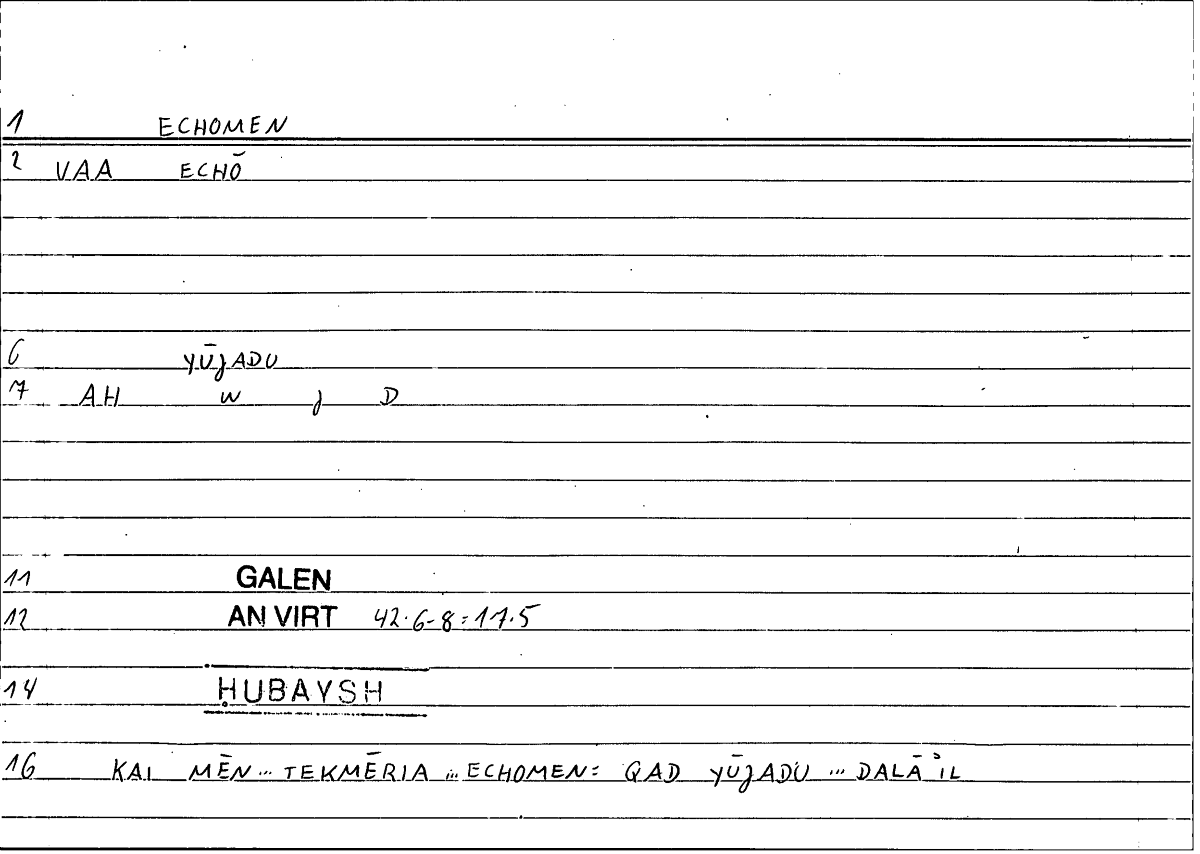 1 ECHOMEN
2 VAA ECHŌ
6 YŪJADU
7 AH W J D
11 GALEN
12 AN VIRT 42.6-8=17.5
14 ḤUBAYSH
16 KAI MĒN... TEKMĒRIA ... ECHOMEN= QAD YŪJADU ... DALĀʾIL